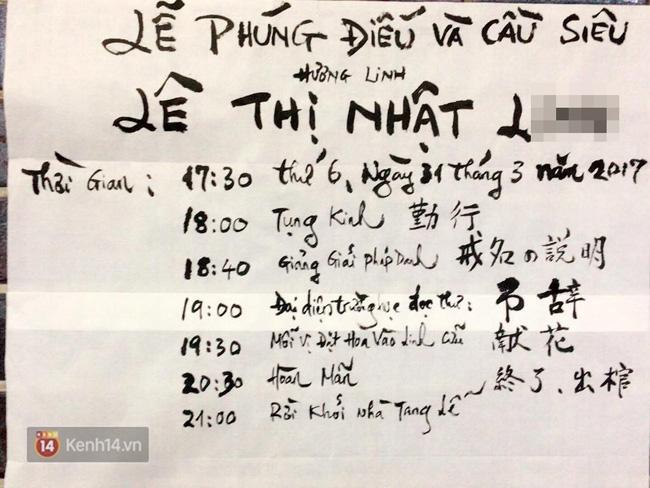 LỄ PHÚNG ĐIẾU VÀ CẦU SIÊU
HƯƠNG LINH
LÊ THỊ NHẬT L
Thời Gian: 17:30 thứ 6, Ngày 31 tháng 3 năm 2017
18:00 Tụng Kinh 勤行
18:40 Giảng Giải Pháp Danh 戒名の説明
19:00 Đại diện trường học đọc thư: 弔辞
19:30 Mỗi Vị Đặt Hoa Vào Linh Cữu 献花
20:30 Hoàn Mãn 終了、出棺
21:00 Rời Khỏi Nhà Tang Lễ
14 Kenh14.vn